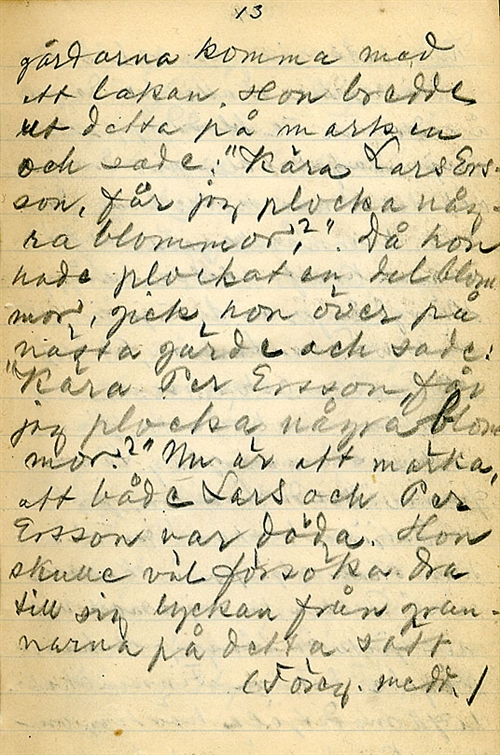 13
gärdarna komma med
ett lakan. Hon bredde
ut detta på marken
och sade: "Kära Lars Ers-
son, får jag plocka någ-
ra blommor?". Då hon
hade plockat en del blom
mor, gick hon över på
nästa gärde och sade:
"Kära Per Ersson, får
jag plocka några blom
mor?" Nu är att märka,
att både Lars och Per
Ersson var döda. Hon
skulle väl försöka dra
till sig lyckan från gran-
narna på detta sätt
(Föreg. medd.)